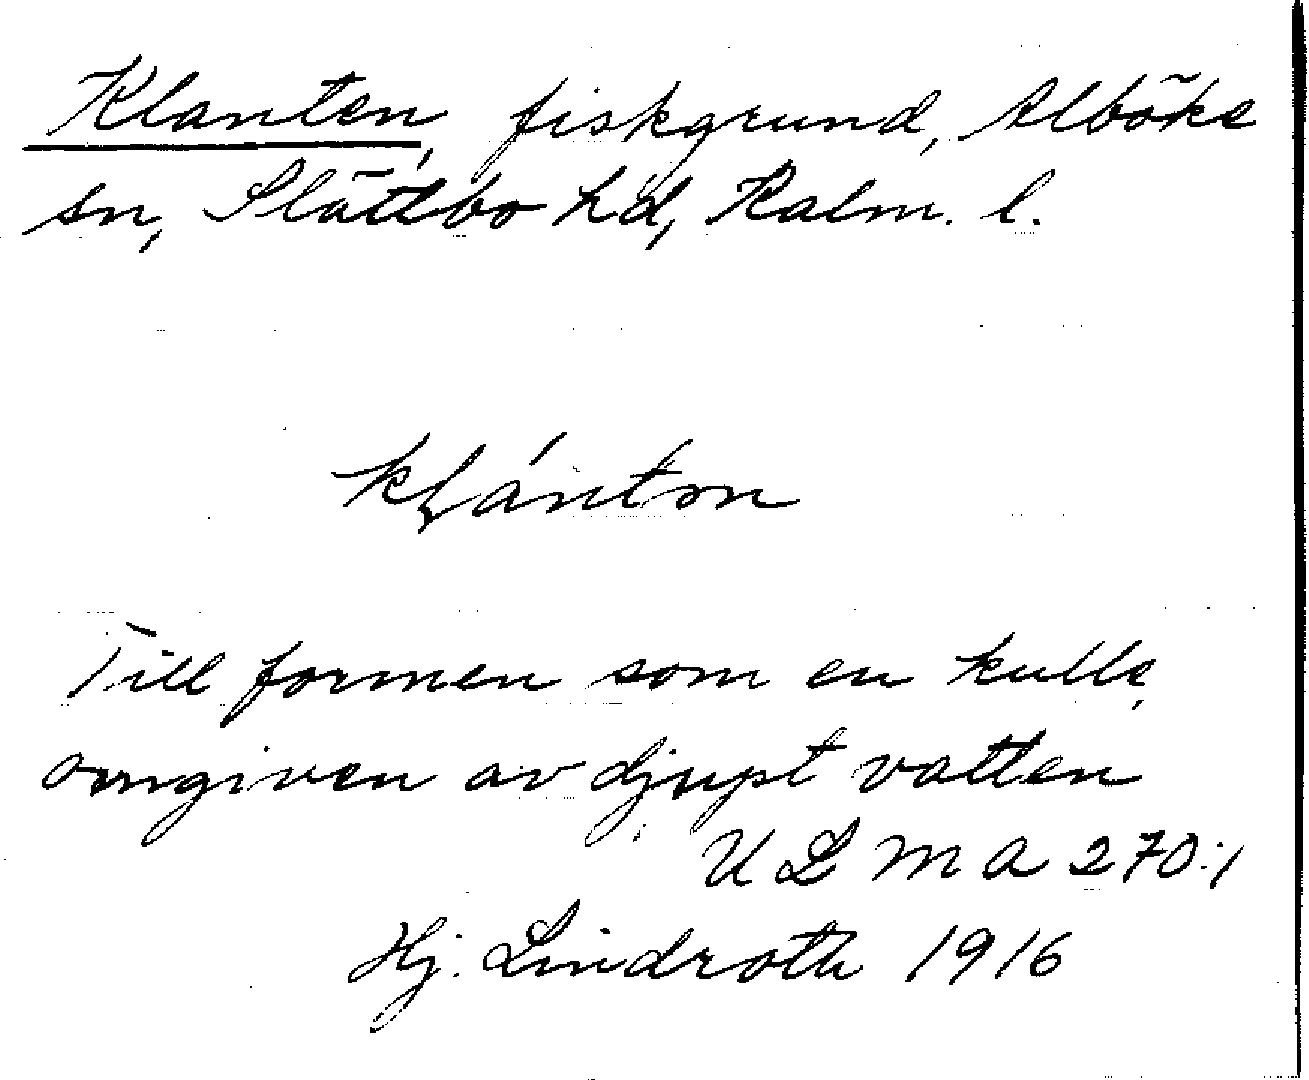 Klanten, fiskgrund, Alböke
sn, Slättbo hd, Kalm. l.
klánton
Till formen som en kulle,
omgiven av djupt vatten
ULMA 270:1
Hj. Lindroth 1916